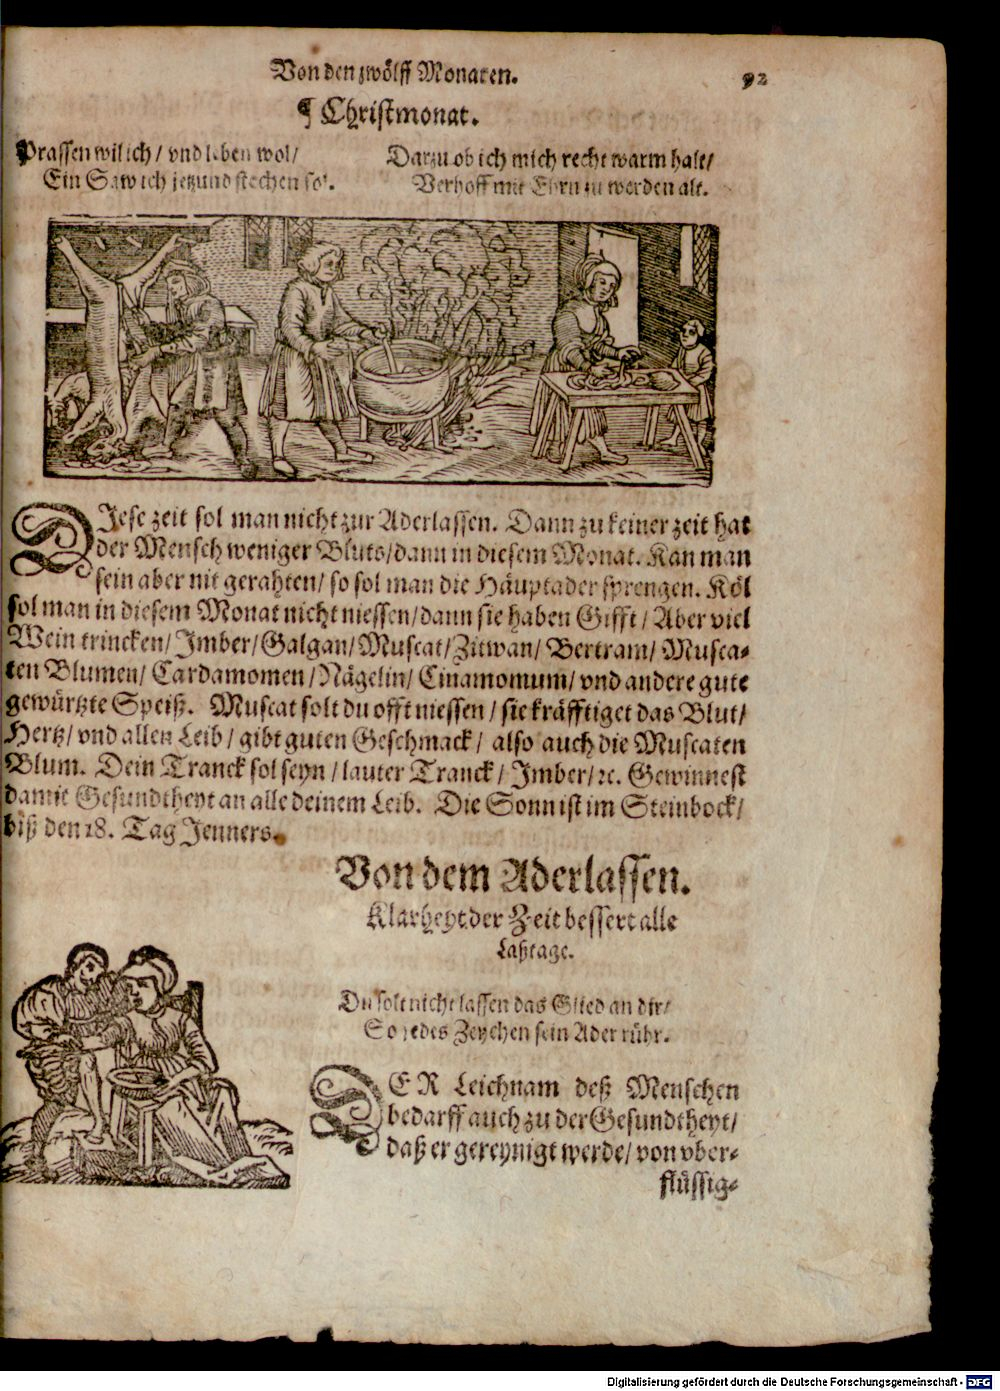 Von den zwölff Monaten. 92
¶ Christmonat.
Prassen wil ich / vnd leben wol /
Ein Saw ich jetzund stechen sol.
Darzu ob ich mich recht warm halt /
Verhoff mit Ehrn zu werden alt.
DIese zeit sol man nicht zur Aderlassen. Dann zu keiner zeit hat
der Mensch weniger Bluts / dann in diesem Monat. Kan man
sein aber nit gerahten / so sol man die Häuptader sprengen. Köl
sol man in diesem Monat nicht niessen / dann sie haben Gifft / Aber viel
Wein trincken / Imber / Galgan / Muscat / Zitwan / Bertram / Musca-
ten Blumen / Cardamomen / Nägelin / Cinamomum / vnd andere gute
gewürtzte Speiß. Muscat solt du offt niessen / sie kräfftiget das Blut /
Hertz / vnd allen Leib / gibt guten Geschmack / also auch die Muscaten
Blum. Dein Tranck sol seyn / lauter Tranck / Imber / ꝛc. Gewinnest
damit Gesundtheyt an alle deinem Leib. Die Sonn ist im Steinbock /
biß den 18. Tag Jenners.
Von dem Aderlassen.
Klarheyt der Zeit bessert alle
Laßtage.
Du solt nicht lassen das Glied an dir /
So jedes Zeychen sein Ader rühr.
DER Leichnam deß Menschen
bedarff auch zu der Gesundtheyt /
daß er gereynigt werde / von vber-
flüssig-
Digitalisierung gefördert durch die Deutsche Forschungsgemeinschaft - DFG